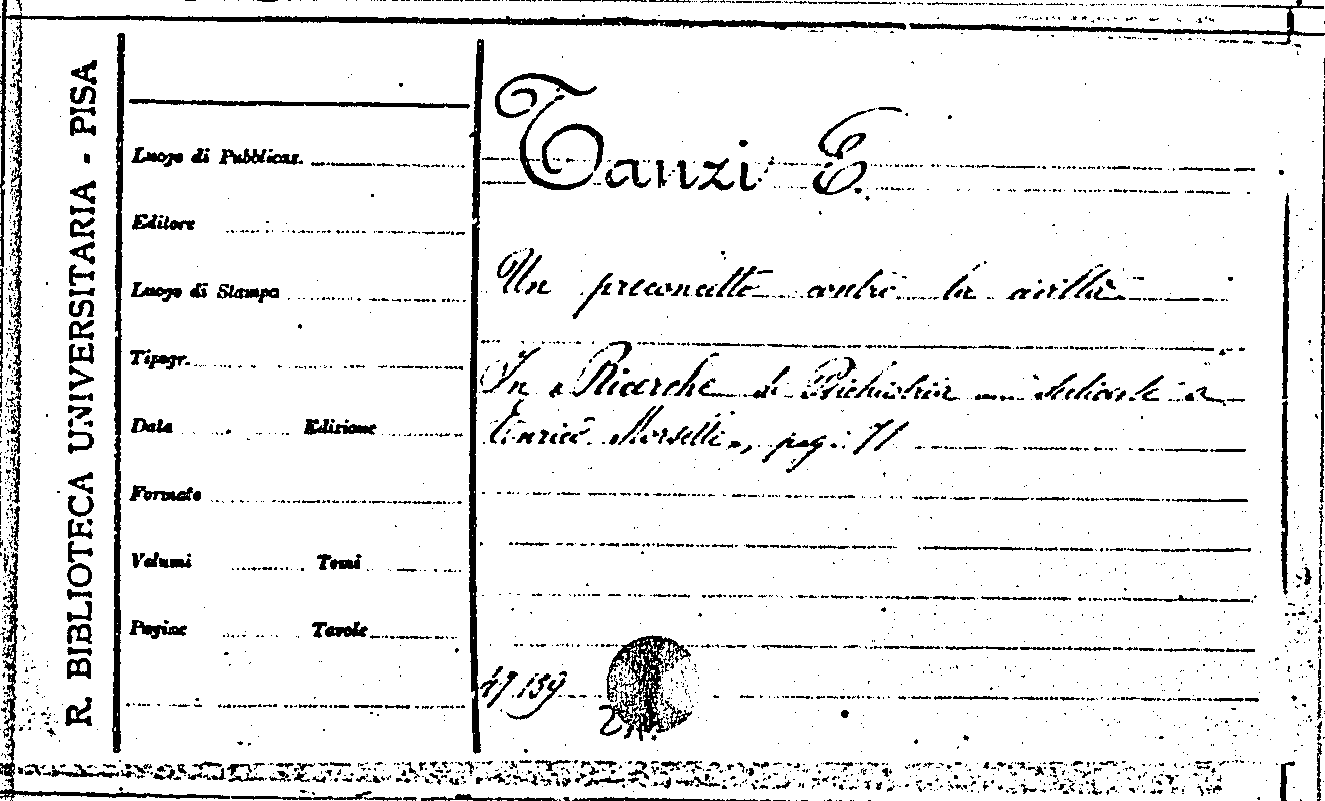 R. BIBLIOTECA UNIVERSITARIA - PISA
Luogo di Pubblicaz.
Editore
Luogo di Stampa
Tipogr.
Data Edizione
Formato
Volumi Tomi
Pagine Tavole
Tanzi E.
Un preconcetto contro la civiltà
In « Ricerche di Psichiatria ... dedicate a
Enrico Morselli », pag. 71
47.159